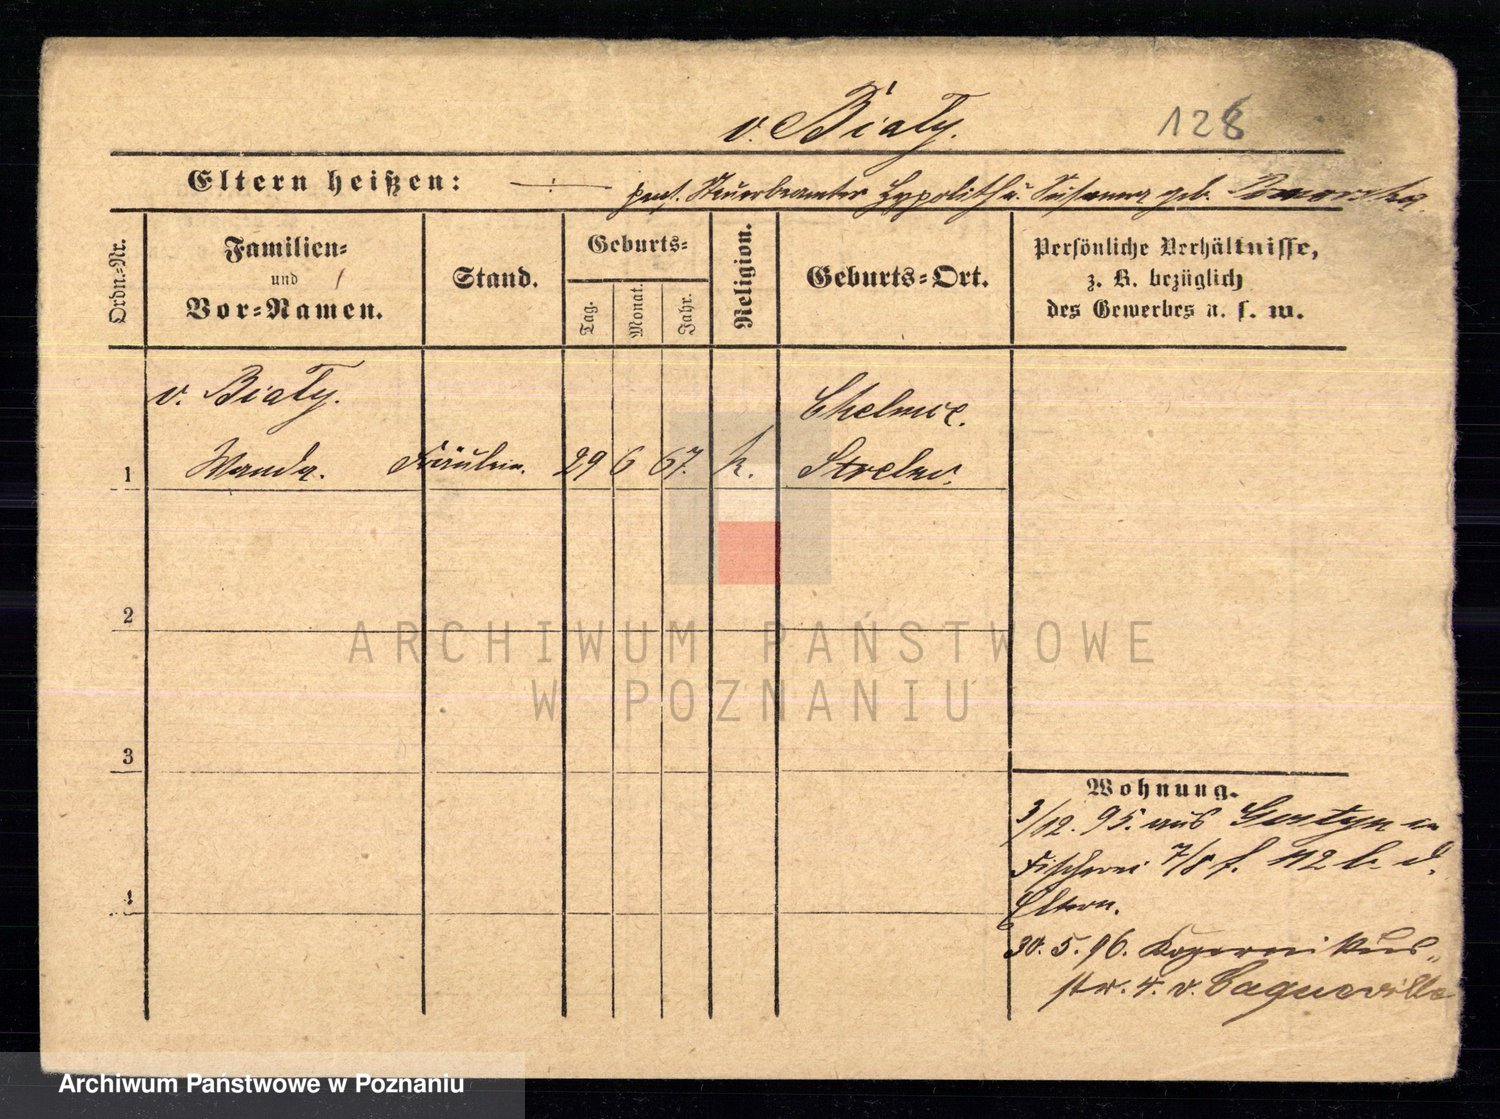 v. Biały.
128
Eltern heißen: pens. Steuerbeamter Hypolith u. Susanna geb. Pomorska.
Ordn.=Nr.
Familien=
und
Vor=Namen.
Stand.
Geburts=
Tag.
Monat.
Jahr.
Religion.
Geburts=Ort.
Persönliche Verhältnisse,
z. B. bezüglich
des Gewerbes u. s. w.
v. Biały.
Chelmce.
1 Wanda. Fräulein. 29 6 67. k. Strelno.
2
3
4
Wohnung.
3/12. 95. aus Gostyn
Fischerei 7/8 b. d.
Eltern.
30. 5. 96. Kopernikus=
str. 4. v.
ARCHIWUM PAŃSTWOWE
W POZNANIU
Archiwum Państwowe w Poznaniu